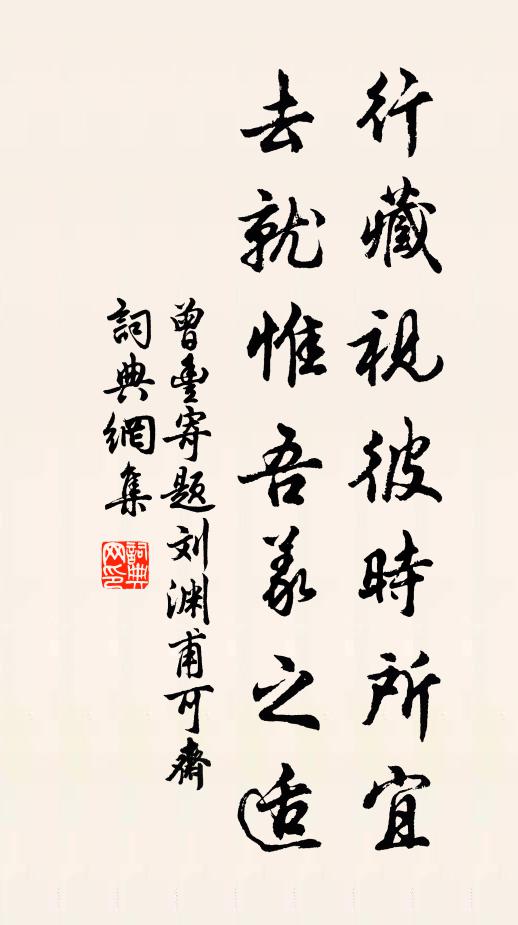 行藏視彼時所宜
去就惟吾义之适
曾豊寄题刘渊甫可齋
詞典網集
詞典网印